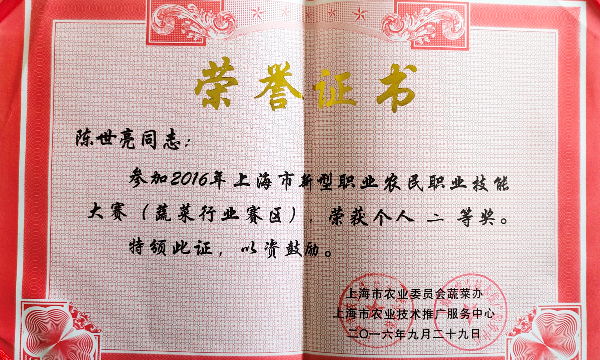 荣誉证书
陈世亮同志：
参加2016年上海市新型职业农民职业技能
大赛（蔬菜行业赛区），荣获个人 二 等奖。
特颁此证，以资鼓励。
上海市农业委员会蔬菜办
上海市农业技术推广服务中心
二〇一六年九月二十九日